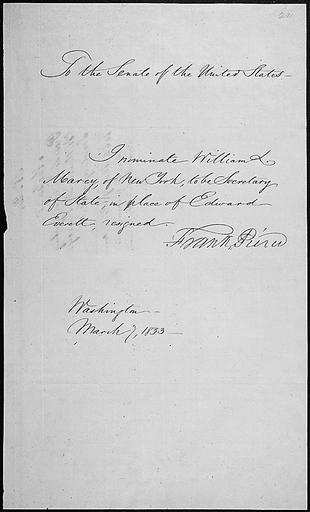 To the Senate of the United States—
I nominate William L.
Marcy, of New York, to be Secretary
of State, in place of Edward
Everett, resigned.
Franklin Pierce
Washington
March 7, 1853